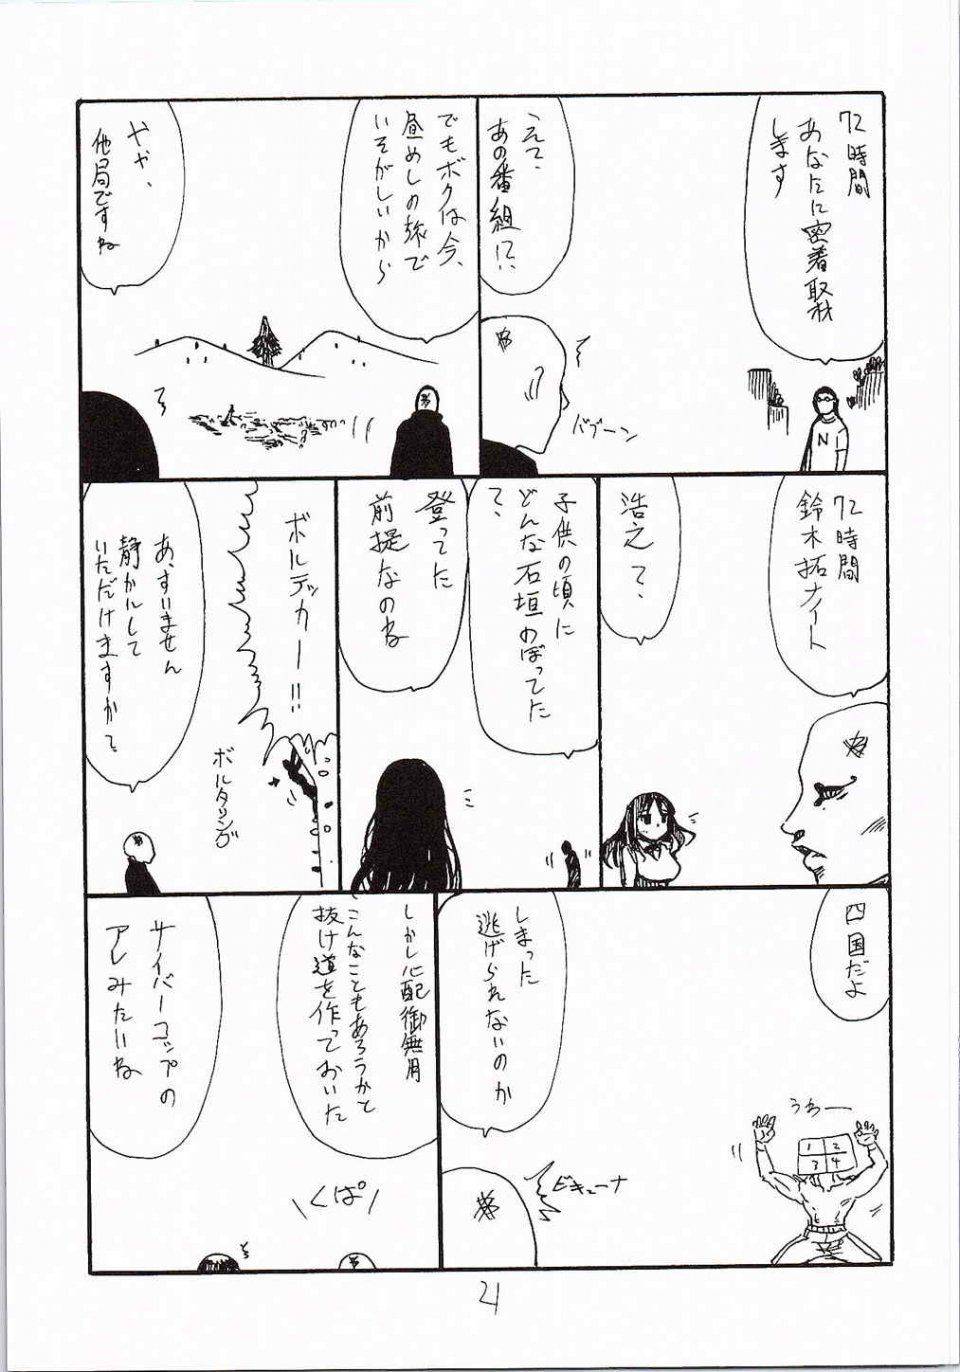 72時間
あなたに密着取材
します
N
えて、
あの番組!?
バブーン
でもボクは今、
昼めしの旅で
いそがしいから
やや、
他局ですね
72時間
鈴木拓ナイト
浩之て、
子供の頃に
どんな石垣のぼってた
て、
登ってた
前提なのね
ボルテッカー!!
ボルタリング
あ、すいません
静かにして
いただけますかて
四国だよ
うわー
1 2
3 4
しまった
逃げられないのか
ビキューナ
しかし心配御無用
こんなこともあろうかと
抜け道を作っておいた
くぱぁ
サイバーコップの
アレみたいね
21